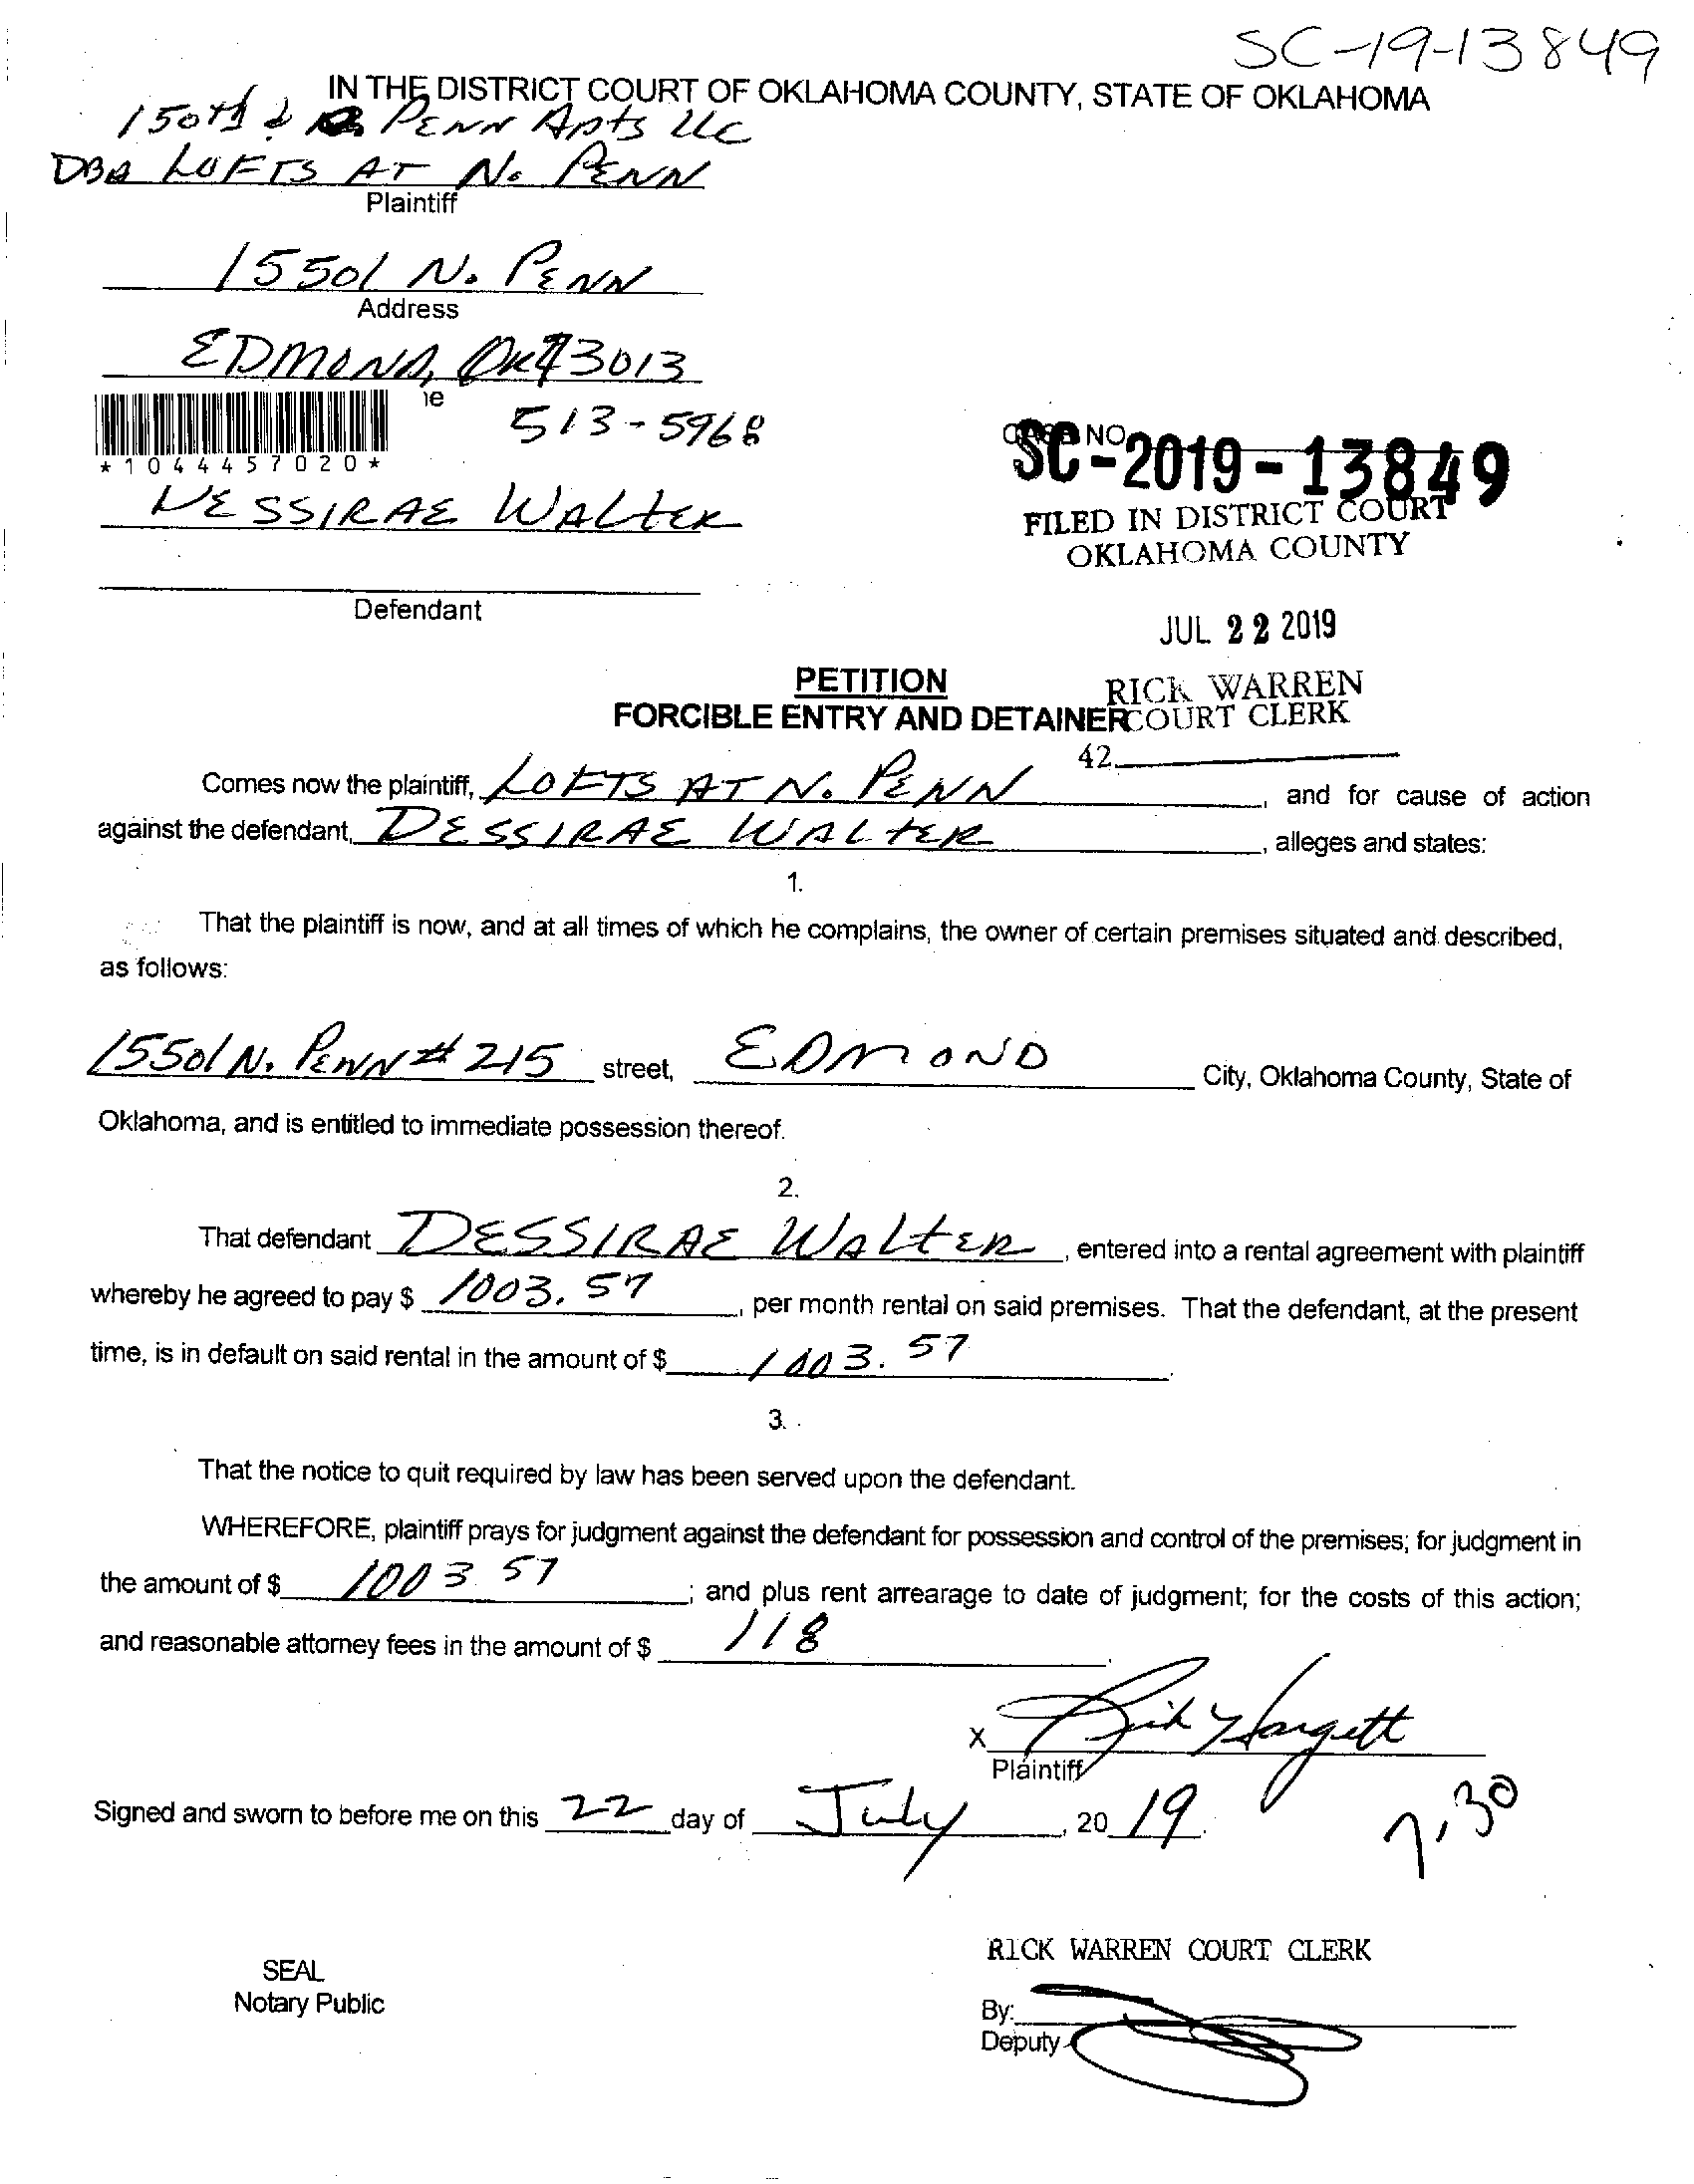 SC-19-13849
IN THE DISTRICT COURT OF OKLAHOMA COUNTY, STATE OF OKLAHOMA
150th & PENN Apts LLC
DBA LOFTS AT N. PENN
Plaintiff
15501 N. PENN
Address
EDMOND, OK 73013
513-5968
*1044457020*
DESSIRAE WALTER
Defendant
NO.
SC-2019-13849
FILED IN DISTRICT COURT
OKLAHOMA COUNTY
JUL 22 2019
PETITION
RICK WARREN
FORCIBLE ENTRY AND DETAINER
COURT CLERK
42
Comes now the plaintiff, LOFTS AT N. PENN, and for cause of action
against the defendant, DESSIRAE WALTER, alleges and states:
1.
That the plaintiff is now, and at all times of which he complains, the owner of certain premises situated and described,
as follows:
15501 N. PENN # 215 street, EDMOND City, Oklahoma County, State of
Oklahoma, and is entitled to immediate possession thereof.
2.
That defendant DESSIRAE WALTER, entered into a rental agreement with plaintiff
whereby he agreed to pay $ 1003.57, per month rental on said premises. That the defendant, at the present
time, is in default on said rental in the amount of $ 1003.57.
3.
That the notice to quit required by law has been served upon the defendant.
WHEREFORE, plaintiff prays for judgment against the defendant for possession and control of the premises; for judgment in
the amount of $ 1003 57; and plus rent arrearage to date of judgment; for the costs of this action;
and reasonable attorney fees in the amount of $ 118.
X Rick Hargett
Plaintiff
Signed and sworn to before me on this 22 day of July, 20 19.
RICK WARREN COURT CLERK
SEAL
Notary Public
By:
Deputy